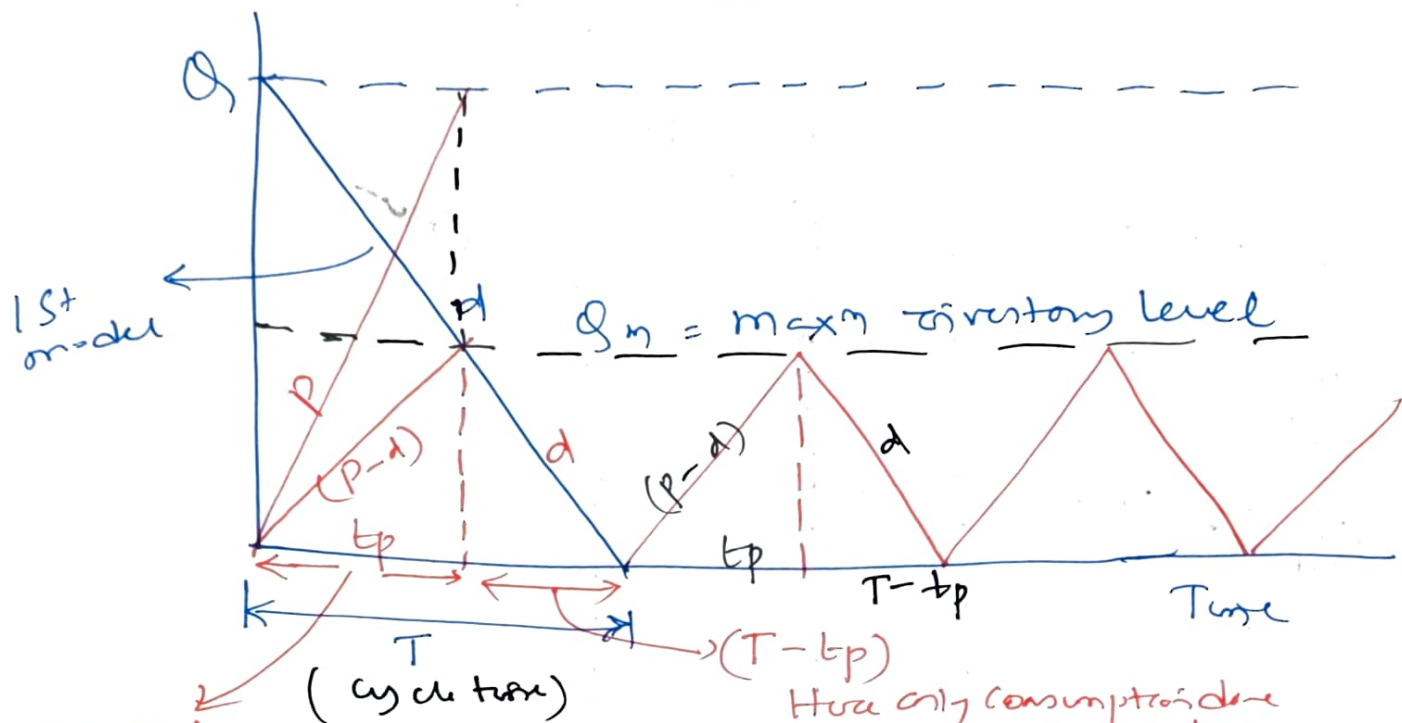 Q
1st
model
d
Qm = maxm inventory level
P
(P-d)
d
(P-d)
d
tp
tp
T-tp
Time
T
(cycle time)
(T-tp)
Here only consumption done